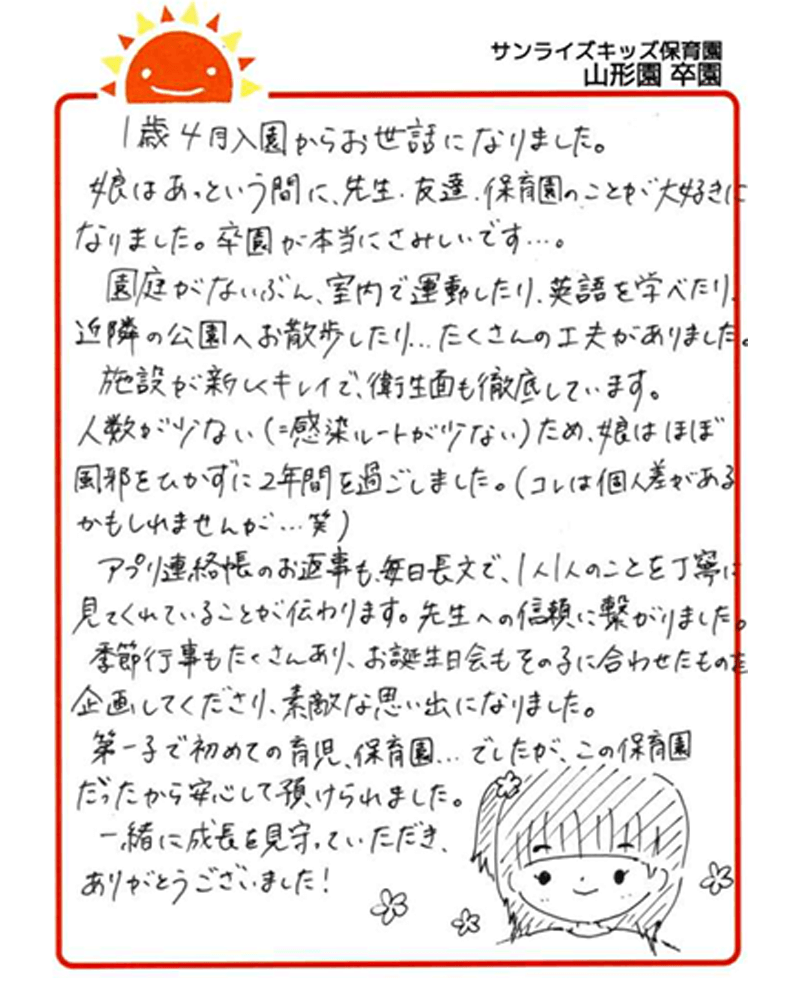 サンライズキッズ保育園
山形園 卒園
1歳4月入園からお世話になりました。
娘はあっという間に、先生・友達・保育園のことが大好きに
なりました。卒園が本当にさみしいです…。
園庭がないぶん、室内で運動したり、英語を学べたり、
近隣の公園へお散歩したり…たくさんの工夫がありました。
施設が新しくキレイで、衛生面も徹底しています。
人数が少ない(=感染ルートが少ない)ため、娘はほぼ
風邪をひかずに2年間を過ごしました。(コレは個人差がある
かもしれませんが…笑)
アプリ連絡帳のお返事も、毎日長文で、1人1人のことを丁寧に
見てくれていることが伝わります。先生への信頼に繋がりました。
季節行事もたくさんあり、お誕生日会もその子に合わせたものを
企画してくださり、素敵な思い出になりました。
第一子で初めての育児、保育園…でしたが、この保育園
だったから安心して預けられました。
一緒に成長を見守っていただき、
ありがとうございました!